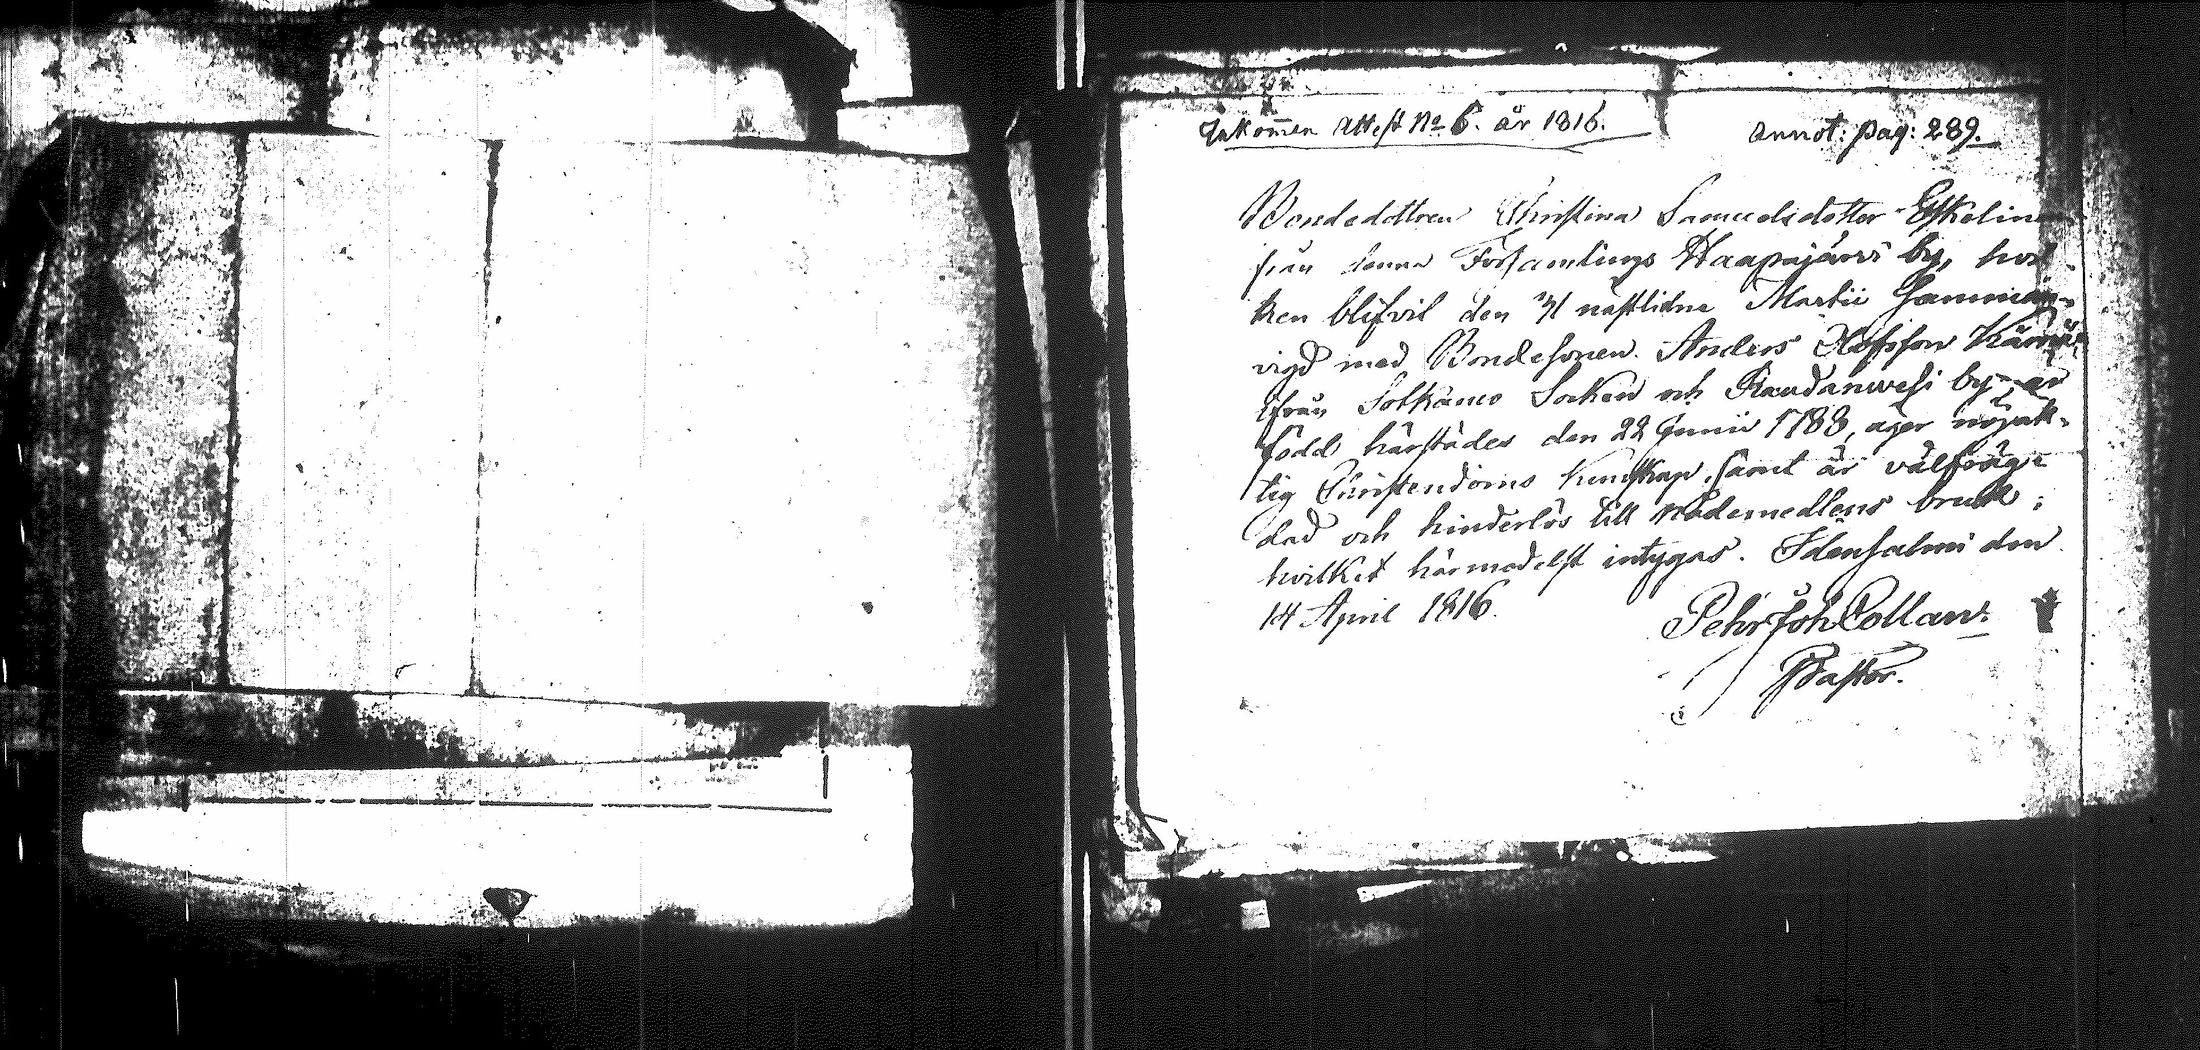 Inkom̄en Attest No 6. år 1816. Annot: pag: 289.
Bondedottren Christina Samuelsdotter Eskelin
från denna Församlings Haapajärvi by, hvil-
ken blifvit den nästlidne Martii Samman-
vigd med Bondesonen Anders Olofsson
ifrån Sotkamo Socken och by, är
född härstädes den 22 Junii 1788, äger nöjak-
tig Christendoms kunskap, samt är välfräg-
dad och hinderlös till Nådemedlens bruk;
hvilket härmedelst intygas. Idensalmi den
14 April 1816.
Pehr Joh Collan.
Pastor.